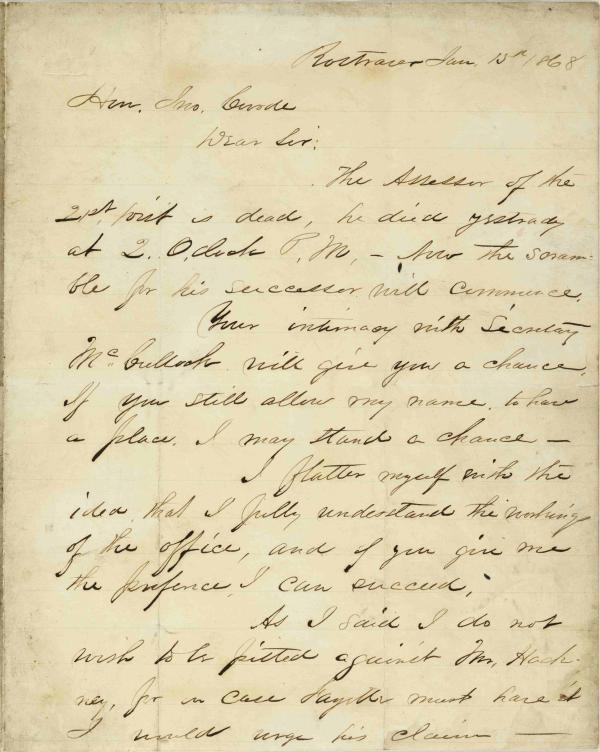 Rostraver Jan. 15th 1868
Hon. Jno. Covode
Dear Sir:
The Assessor of the
21st. Dist is dead, he died yestrady
at 2. O,clock P,M, – Now the scram-
ble for his successor will commence.
Your intimacy with Secretary
McCulloch will give you a chance.
If you still allow my name to have
a place. I may stand a chance —
I flatter myself with the
idea that I fully understand the workings
of the office, and if you give me
the prefrence, I can succeed,
As I said I do not
wish to be pitted against Mr, Hack-
ney, for in case Fayette must have it
I would urge his claim —